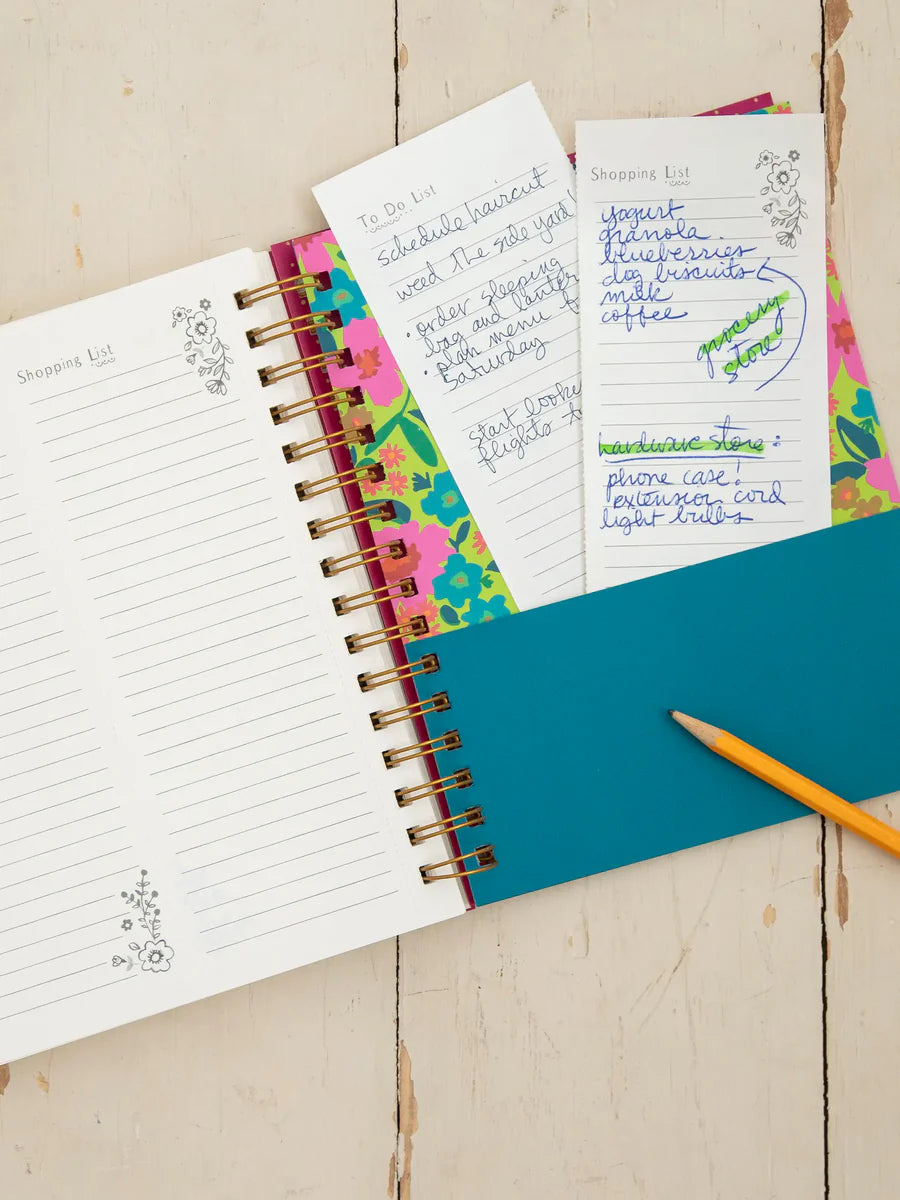 Shopping List
To Do List
schedule haircut
weed the side yard
• order sleeping
bag and lanter
• plan menu f
Saturday
start looki
flights to
Shopping List
yogurt
granola
blueberries
dog biscuits
milk
coffee
grocery
store
hardware store:
phone case!
extension cord
light bulbs